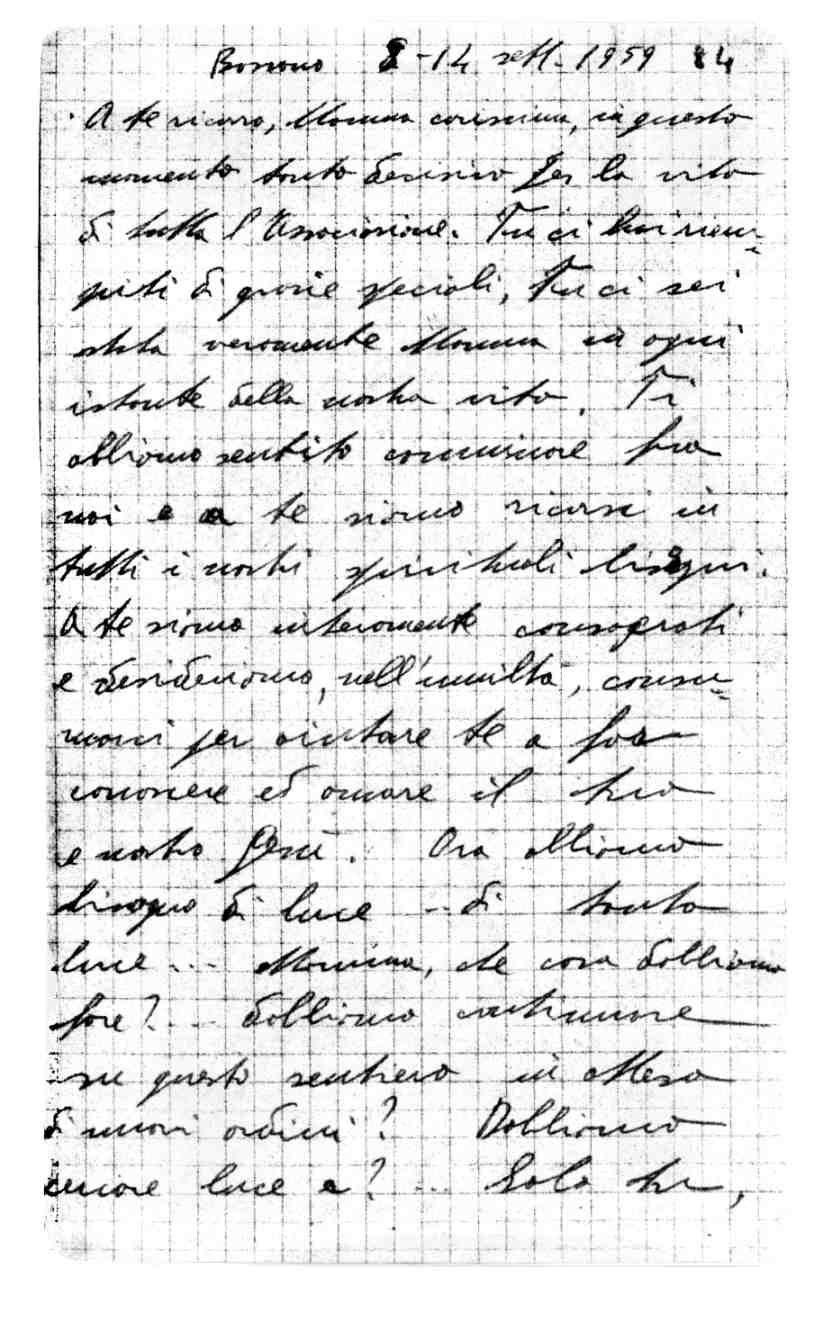 8-14 sett. 1959 14
A te ricorro, Mamma carissima, in questo
momento tanto decisivo per la vita
di tutta l'Associazione. Tu ci hai riem-
piti di grazie speciali, Tu ci sei
stata veramente Mamma in ogni
istante della nostra vita. Ti
abbiamo sentito camminare fra
noi e a te siamo ricorsi in
tutti i nostri spirituali bisogni.
A te siamo interamente consacrati
e desideriamo, nell'umiltà, consu-
marci per aiutare te a far
conoscere ed amare il tuo
e nostro Gesù. Ora abbiamo
bisogno di luce -- di tanta
luce... Mamma, che cosa dobbiamo
fare?... dobbiamo continuare
su questo sentiero in attesa
di nuovi ordini? Dobbiamo
luce a? ... Solo tu,